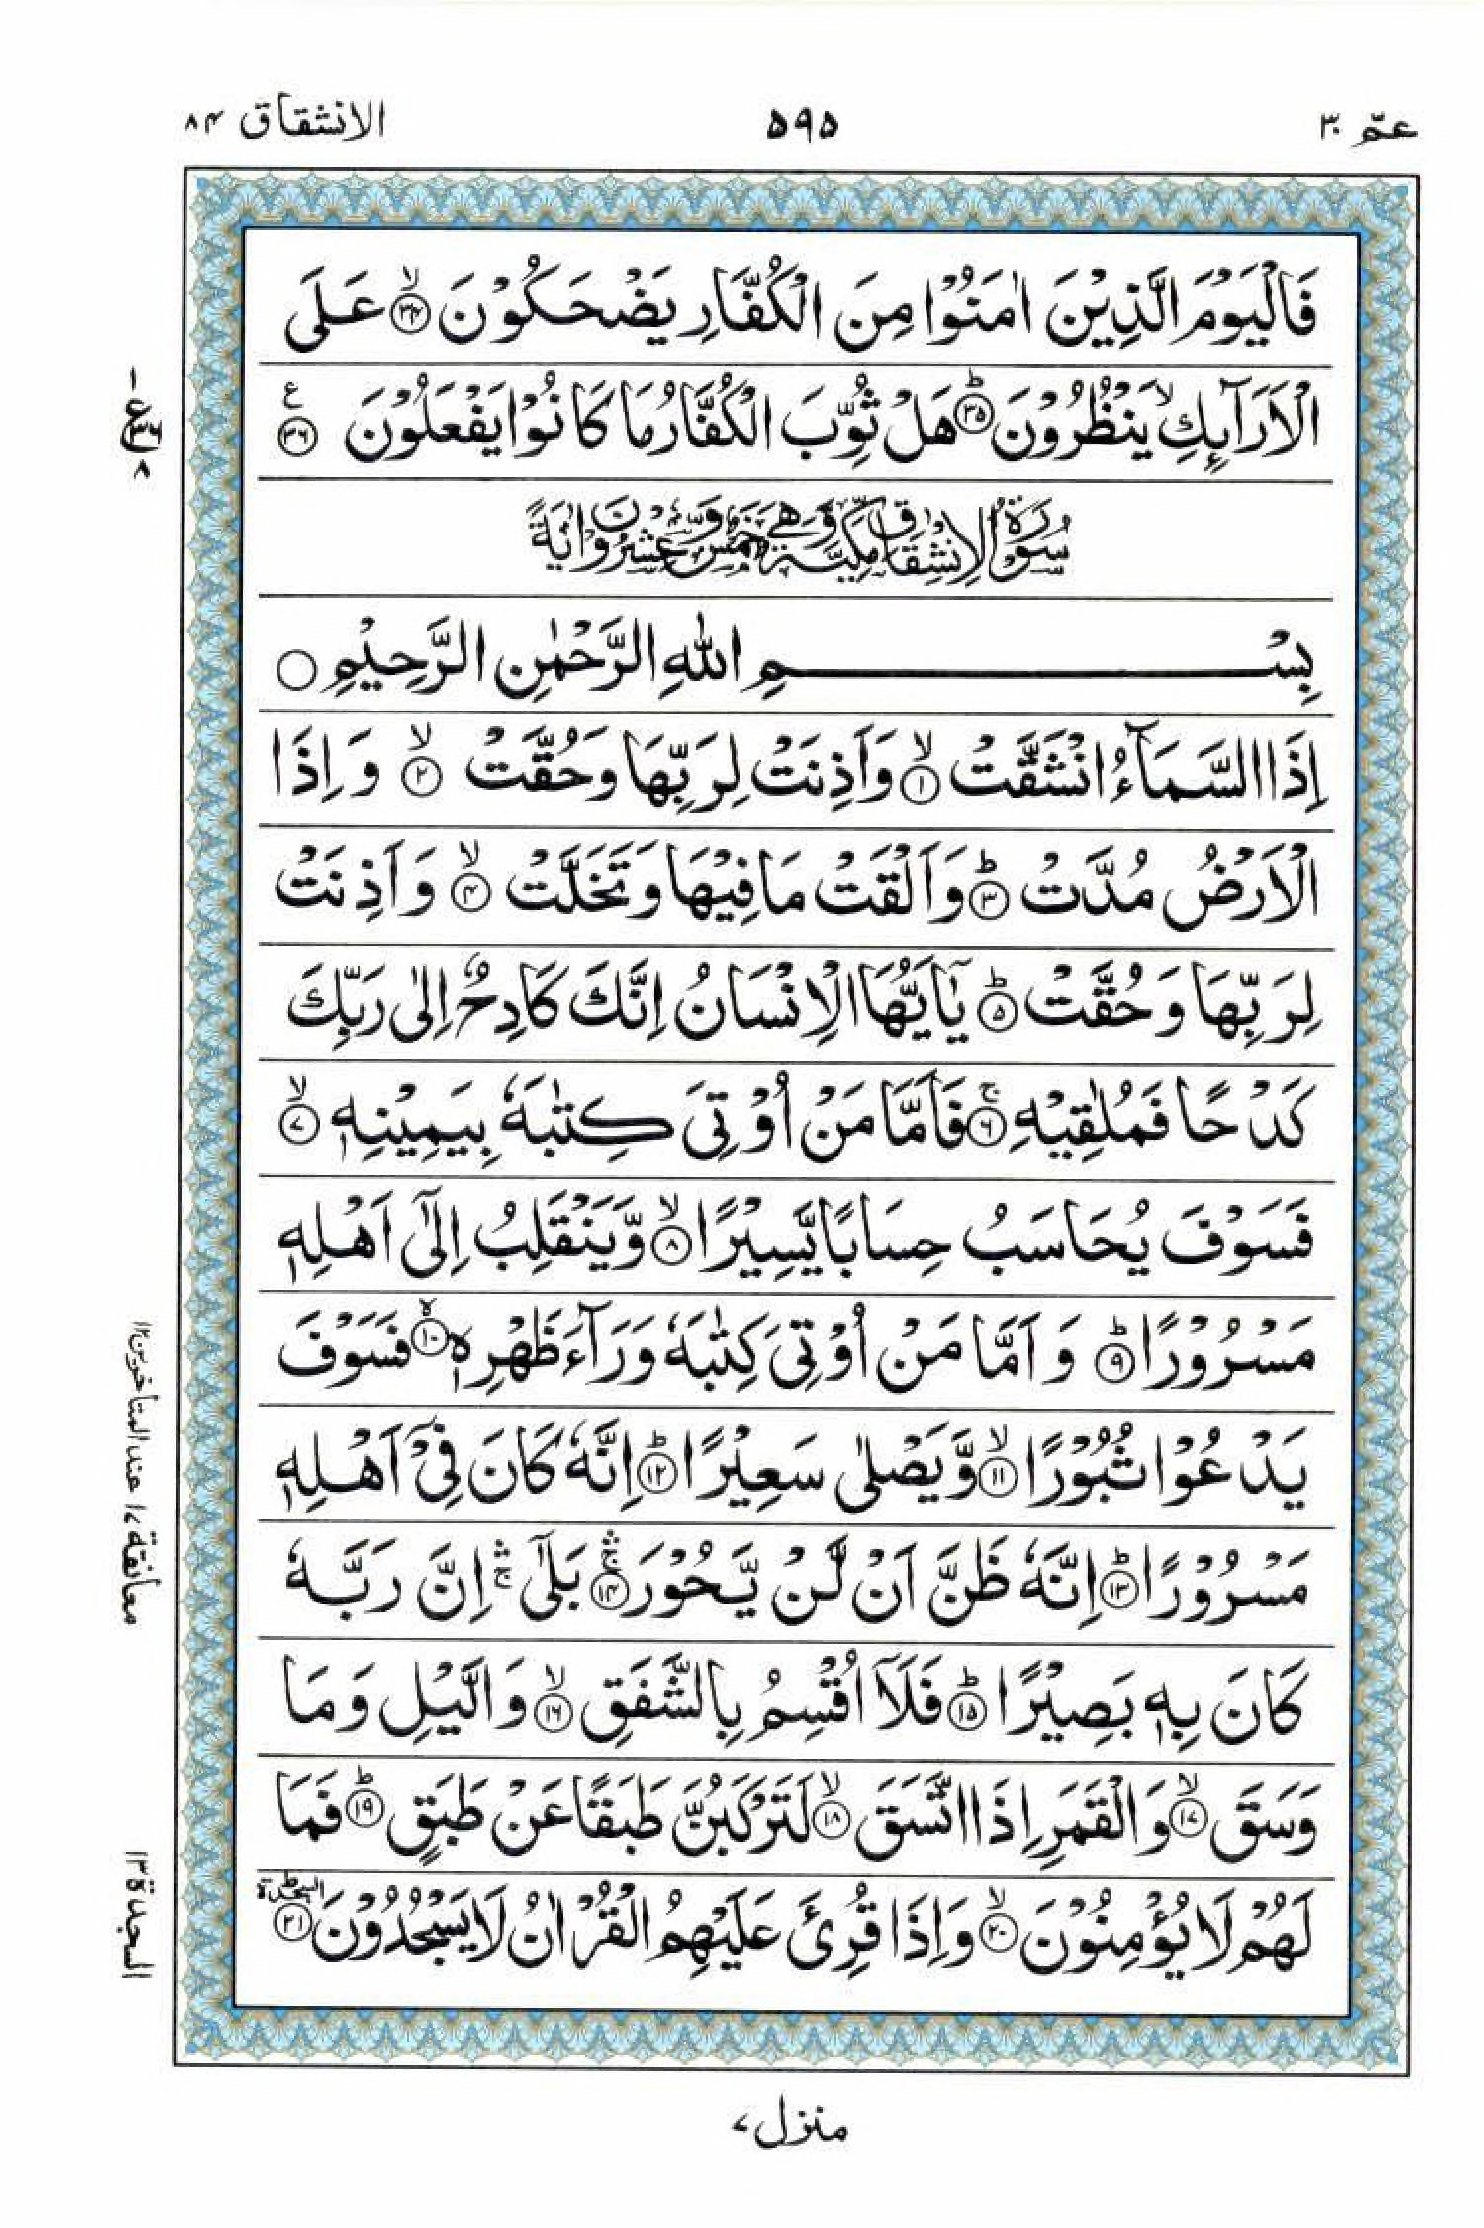 عمّ ۳۰
۵۹۵
الانشقاق ۸۴
فَالْیَوْمَ الَّذِیْنَ اٰمَنُوْا مِنَ الْكُفَّارِ یَضْحَكُوْنَ ۙ﴿۳۴﴾ عَلَی
الْاَرَآىِٕكِ ۙ یَنْظُرُوْنَ ؕ﴿۳۵﴾ هَلْ ثُوِّبَ الْكُفَّارُ مَا كَانُوْا یَفْعَلُوْنَ ﴿۳۶﴾ ع
سُوْرَةُ الْاِنْشِقَاقِ مَكِّیَّةٌ وَّهِیَ خَمْسٌ وَّعِشْرُوْنَ اٰیَةً
بِسْمِ اللّٰهِ الرَّحْمٰنِ الرَّحِیْمِ
اِذَا السَّمَآءُ انْشَقَّتْ ۙ﴿۱﴾ وَاَذِنَتْ لِرَبِّهَا وَحُقَّتْ ۙ﴿۲﴾ وَاِذَا
الْاَرْضُ مُدَّتْ ؕ﴿۳﴾ وَاَلْقَتْ مَا فِیْهَا وَتَخَلَّتْ ۙ﴿۴﴾ وَاَذِنَتْ
لِرَبِّهَا وَحُقَّتْ ؕ﴿۵﴾ یٰۤاَیُّهَا الْاِنْسَانُ اِنَّكَ كَادِحٌ اِلٰی رَبِّكَ
كَدْحًا فَمُلٰقِیْهِ ۚ﴿۶﴾ فَاَمَّا مَنْ اُوْتِیَ كِتٰبَهٗ بِیَمِیْنِهٖ ۙ﴿۷﴾
فَسَوْفَ یُحَاسَبُ حِسَابًا یَّسِیْرًا ۙ﴿۸﴾ وَّیَنْقَلِبُ اِلٰۤی اَهْلِهٖ
مَسْرُوْرًا ؕ﴿۹﴾ وَاَمَّا مَنْ اُوْتِیَ كِتٰبَهٗ وَرَآءَ ظَهْرِهٖ ۙ﴿۱۰﴾ فَسَوْفَ
یَدْعُوْا ثُبُوْرًا ۙ﴿۱۱﴾ وَّیَصْلٰی سَعِیْرًا ؕ﴿۱۲﴾ اِنَّهٗ كَانَ فِیْۤ اَهْلِهٖ
مَسْرُوْرًا ؕ﴿۱۳﴾ اِنَّهٗ ظَنَّ اَنْ لَّنْ یَّحُوْرَ ۚۛ﴿۱۴﴾ بَلٰۤی ۚۛ اِنَّ رَبَّهٗ
كَانَ بِهٖ بَصِیْرًا ؕ﴿۱۵﴾ فَلَاۤ اُقْسِمُ بِالشَّفَقِ ۙ﴿۱۶﴾ وَالَّیْلِ وَمَا
وَسَقَ ۙ﴿۱۷﴾ وَالْقَمَرِ اِذَا اتَّسَقَ ۙ﴿۱۸﴾ لَتَرْكَبُنَّ طَبَقًا عَنْ طَبَقٍ ؕ﴿۱۹﴾ فَمَا
لَهُمْ لَا یُؤْمِنُوْنَ ۙ﴿۲۰﴾ وَاِذَا قُرِئَ عَلَیْهِمُ الْقُرْاٰنُ لَا یَسْجُدُوْنَ ؕ﴿۲۱﴾ السجدة
۱ ع ۳۶ ۸
معانقة ۱۷ عند المتاخرین ۱۲
السجدة ۱۳
منزل ۷